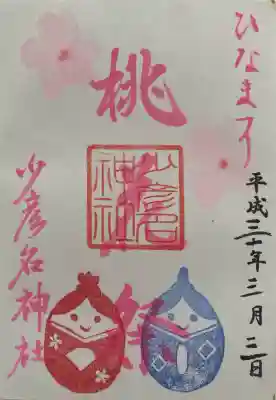 ひなまつり
平成三十年三月三日
桃祭
少彦名神社
少彦名神社